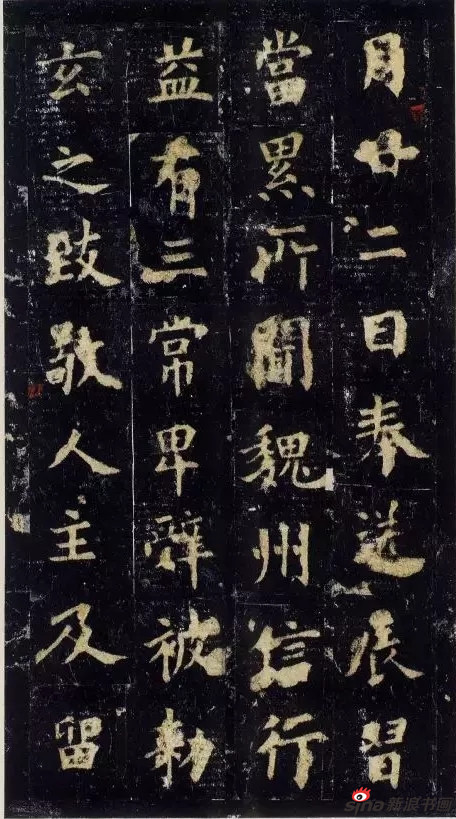 月廿二日奉送展習
當累所聞魏州信行
益有三常卑辭被勑
玄之跂敬人主及留
sina新浪书画